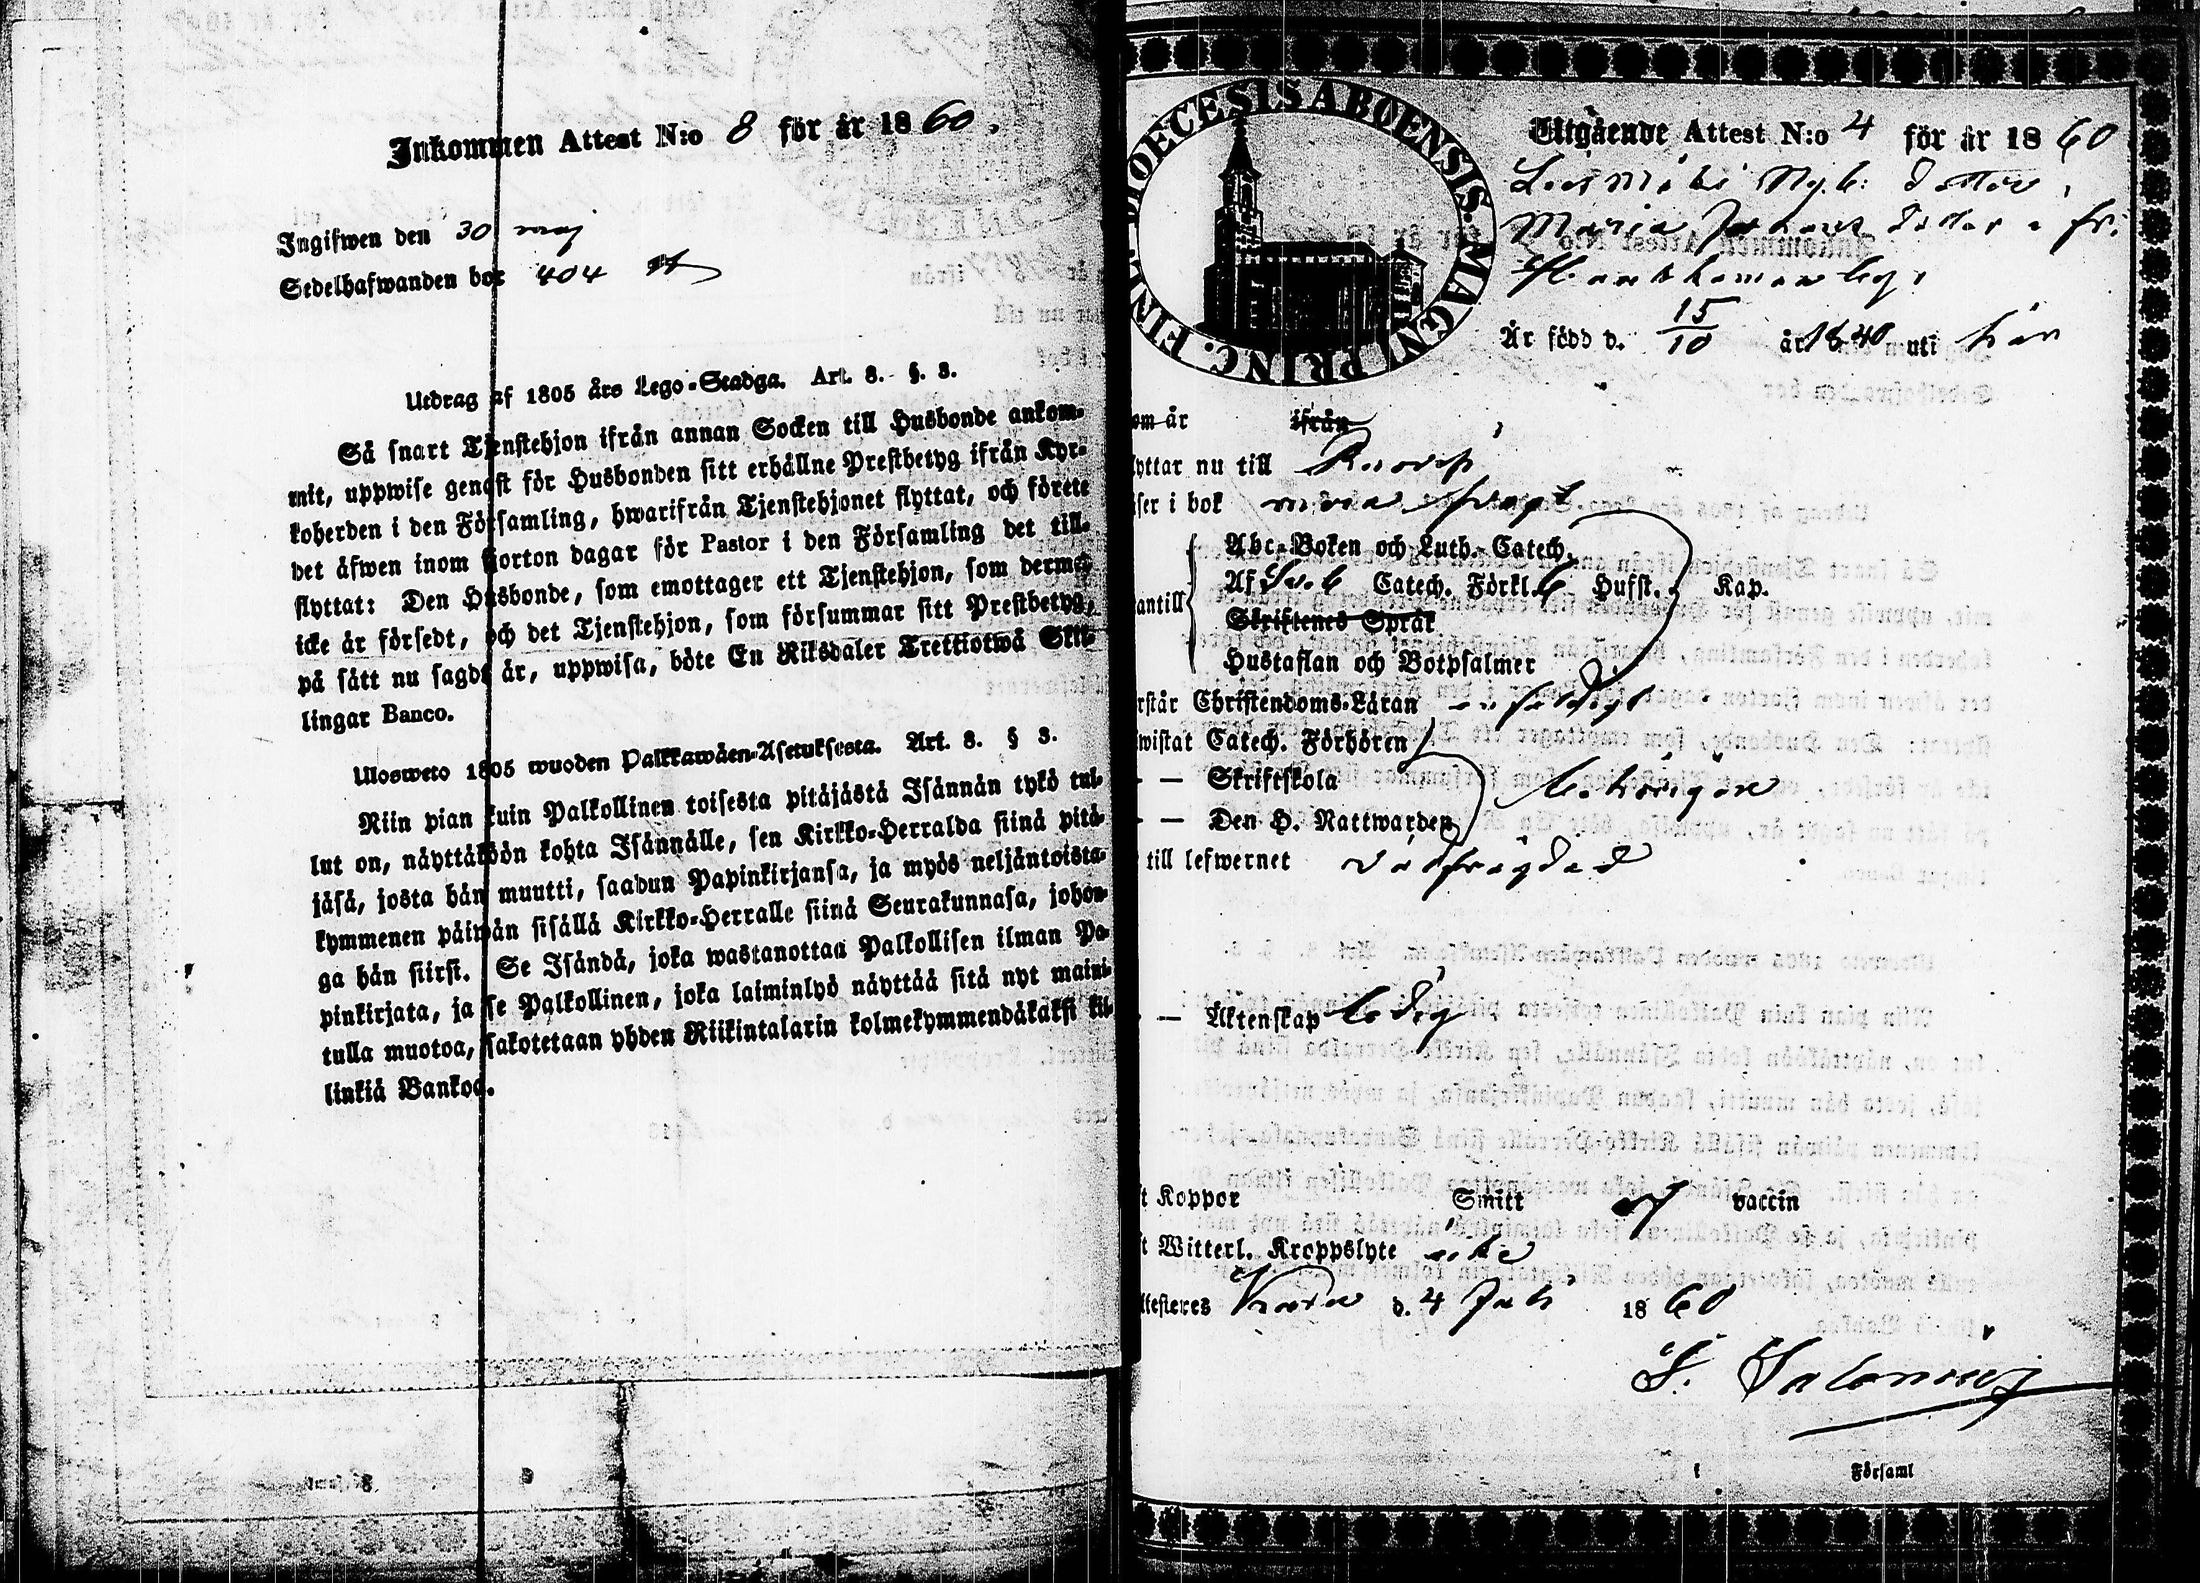 Inkommen Attest N:o 8 för år 1860.
Ingifwen den 30 maj
Sedelhafwanden bor 404
Utdrag af 1805 års Lego-Stadga. Art. 8. §. 3.
Så snart Tjenstehjon ifrån annan Socken till Husbonde ankom-
mit, uppwise genast för Husbonden sitt erhållne Prestbetyg ifrån Kyr-
koherden i den Församling, hwarifrån Tjenstehjonet flyttat, och förete
det äfwen inom fjorton dagar för Pastor i den Församling det till-
flyttat: Den Husbonde, som emottager ett Tjenstehjon, som dermed
icke är försedt, och det Tjenstehjon, som försummar sitt Prestbetyg,
på sätt nu sagdt är, uppwisa, böte En Riksdaler Trettiotwå Skil-
lingar Banco.
Ulosweto 1805 wuoden Palkkawäen-Asetuksesta. Art. 8. § 3.
Niin pian kuin Palkollinen toisesta pitäjästä Isännän tykö tul-
lut on, näyttäköön kohta Isännälle, sen Kirkko-Herralda siinä pitä-
jäsä, josta hän muutti, saadun Papinkirjansa, ja myös neljäntoista-
kymmenen päiwän sisällä Kirkko-Herralle siinä Seurakunnasa, johon-
ga hän siirsi. Se Isändä, joka wastanottaa Palkollisen ilman Pa-
pinkirjata, ja se Palkollinen, joka laiminlyö näyttää sitä nyt maini-
tulla muotoa, sakotetaan yhden Riikintalarin kolmekymmendäkaksi kil-
linkiä Bankoa.
DIOECESIS ABOENSIS. MAGNI PRINC. FINL.
Utgående Attest N:o 4 för år 1860
dotter,
Maria Johans dotter fr.
Är född d. 15/10 år 1840 uti här
om år ifrån
lyttar nu till
ser i bok
antill
Abc-Boken och Luth. Catech.
Af Sv.b Catech. Förkl. 6 Hufst. Kap.
Skriftenes Språk
Hustaflan och Botpsalmer
rstår Christendoms-Läran
wistat Catech. Förhören
- — Skriftskola behörigen
- — Den H. Nattwarden
till lefwernet välfrägdad
- — Äktenskap ledig
t Koppor Smitt af vaccin
t Witterl. Kroppslyte icke
ttesteres d. 4 Juli 1860
F. Salonius
i Församl